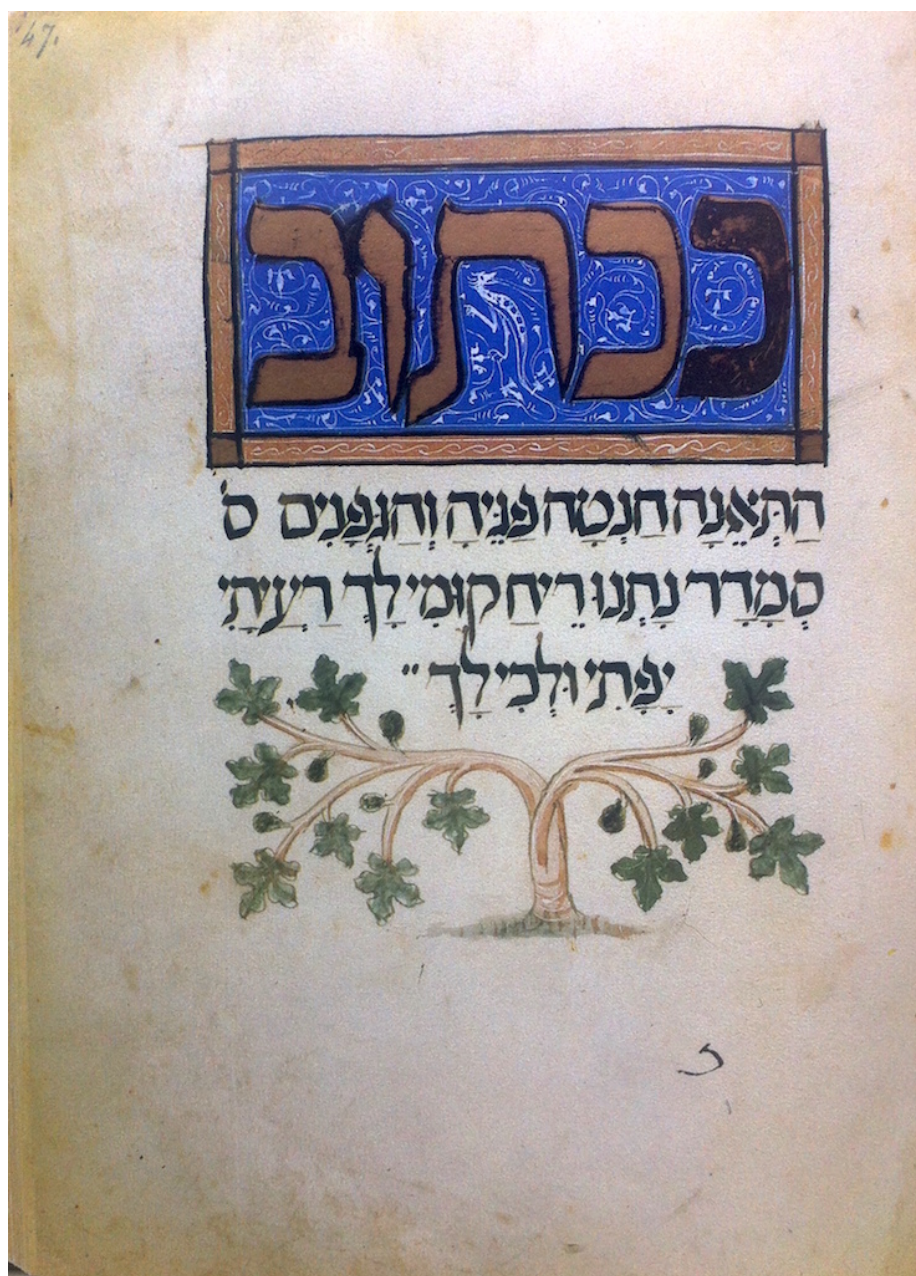 47.
ככתוב
הַתְּאֵנָה חָנְטָה פַגֶּיהָ וְהַגְּפָנִים ס
סְמָדַר נָתְנוּ רֵיחַ קוּמִי לָךְ רַעְיָתִי
יָפָתִי וּלְכִי לָךְ ״